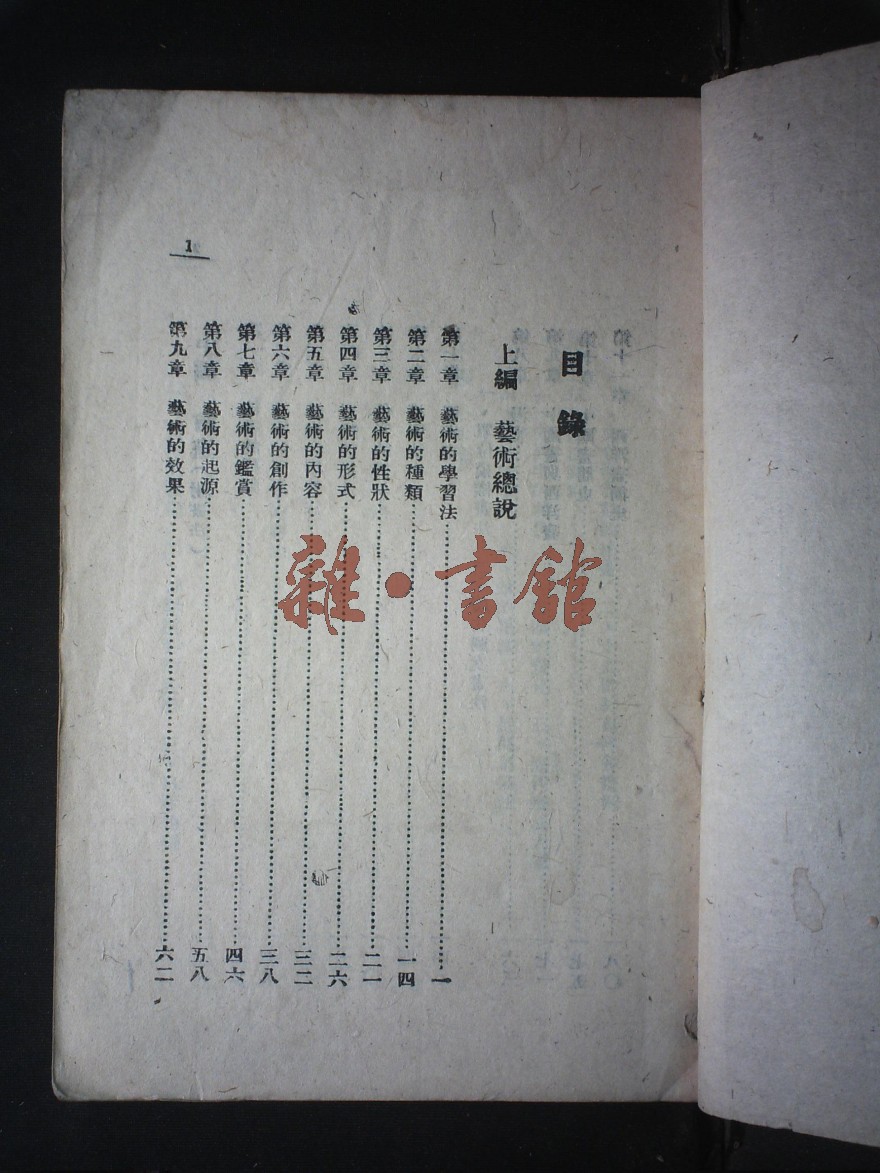 目錄
上編 藝術總說
第一章 藝術的學習法……一
第二章 藝術的種類……一四
第三章 藝術的性狀……二一
第四章 藝術的形式……二六
第五章 藝術的內容……三二
第六章 藝術的創作……三八
第七章 藝術的鑑賞……四六
第八章 藝術的起源……五八
第九章 藝術的效果……六二
1
雜·書館